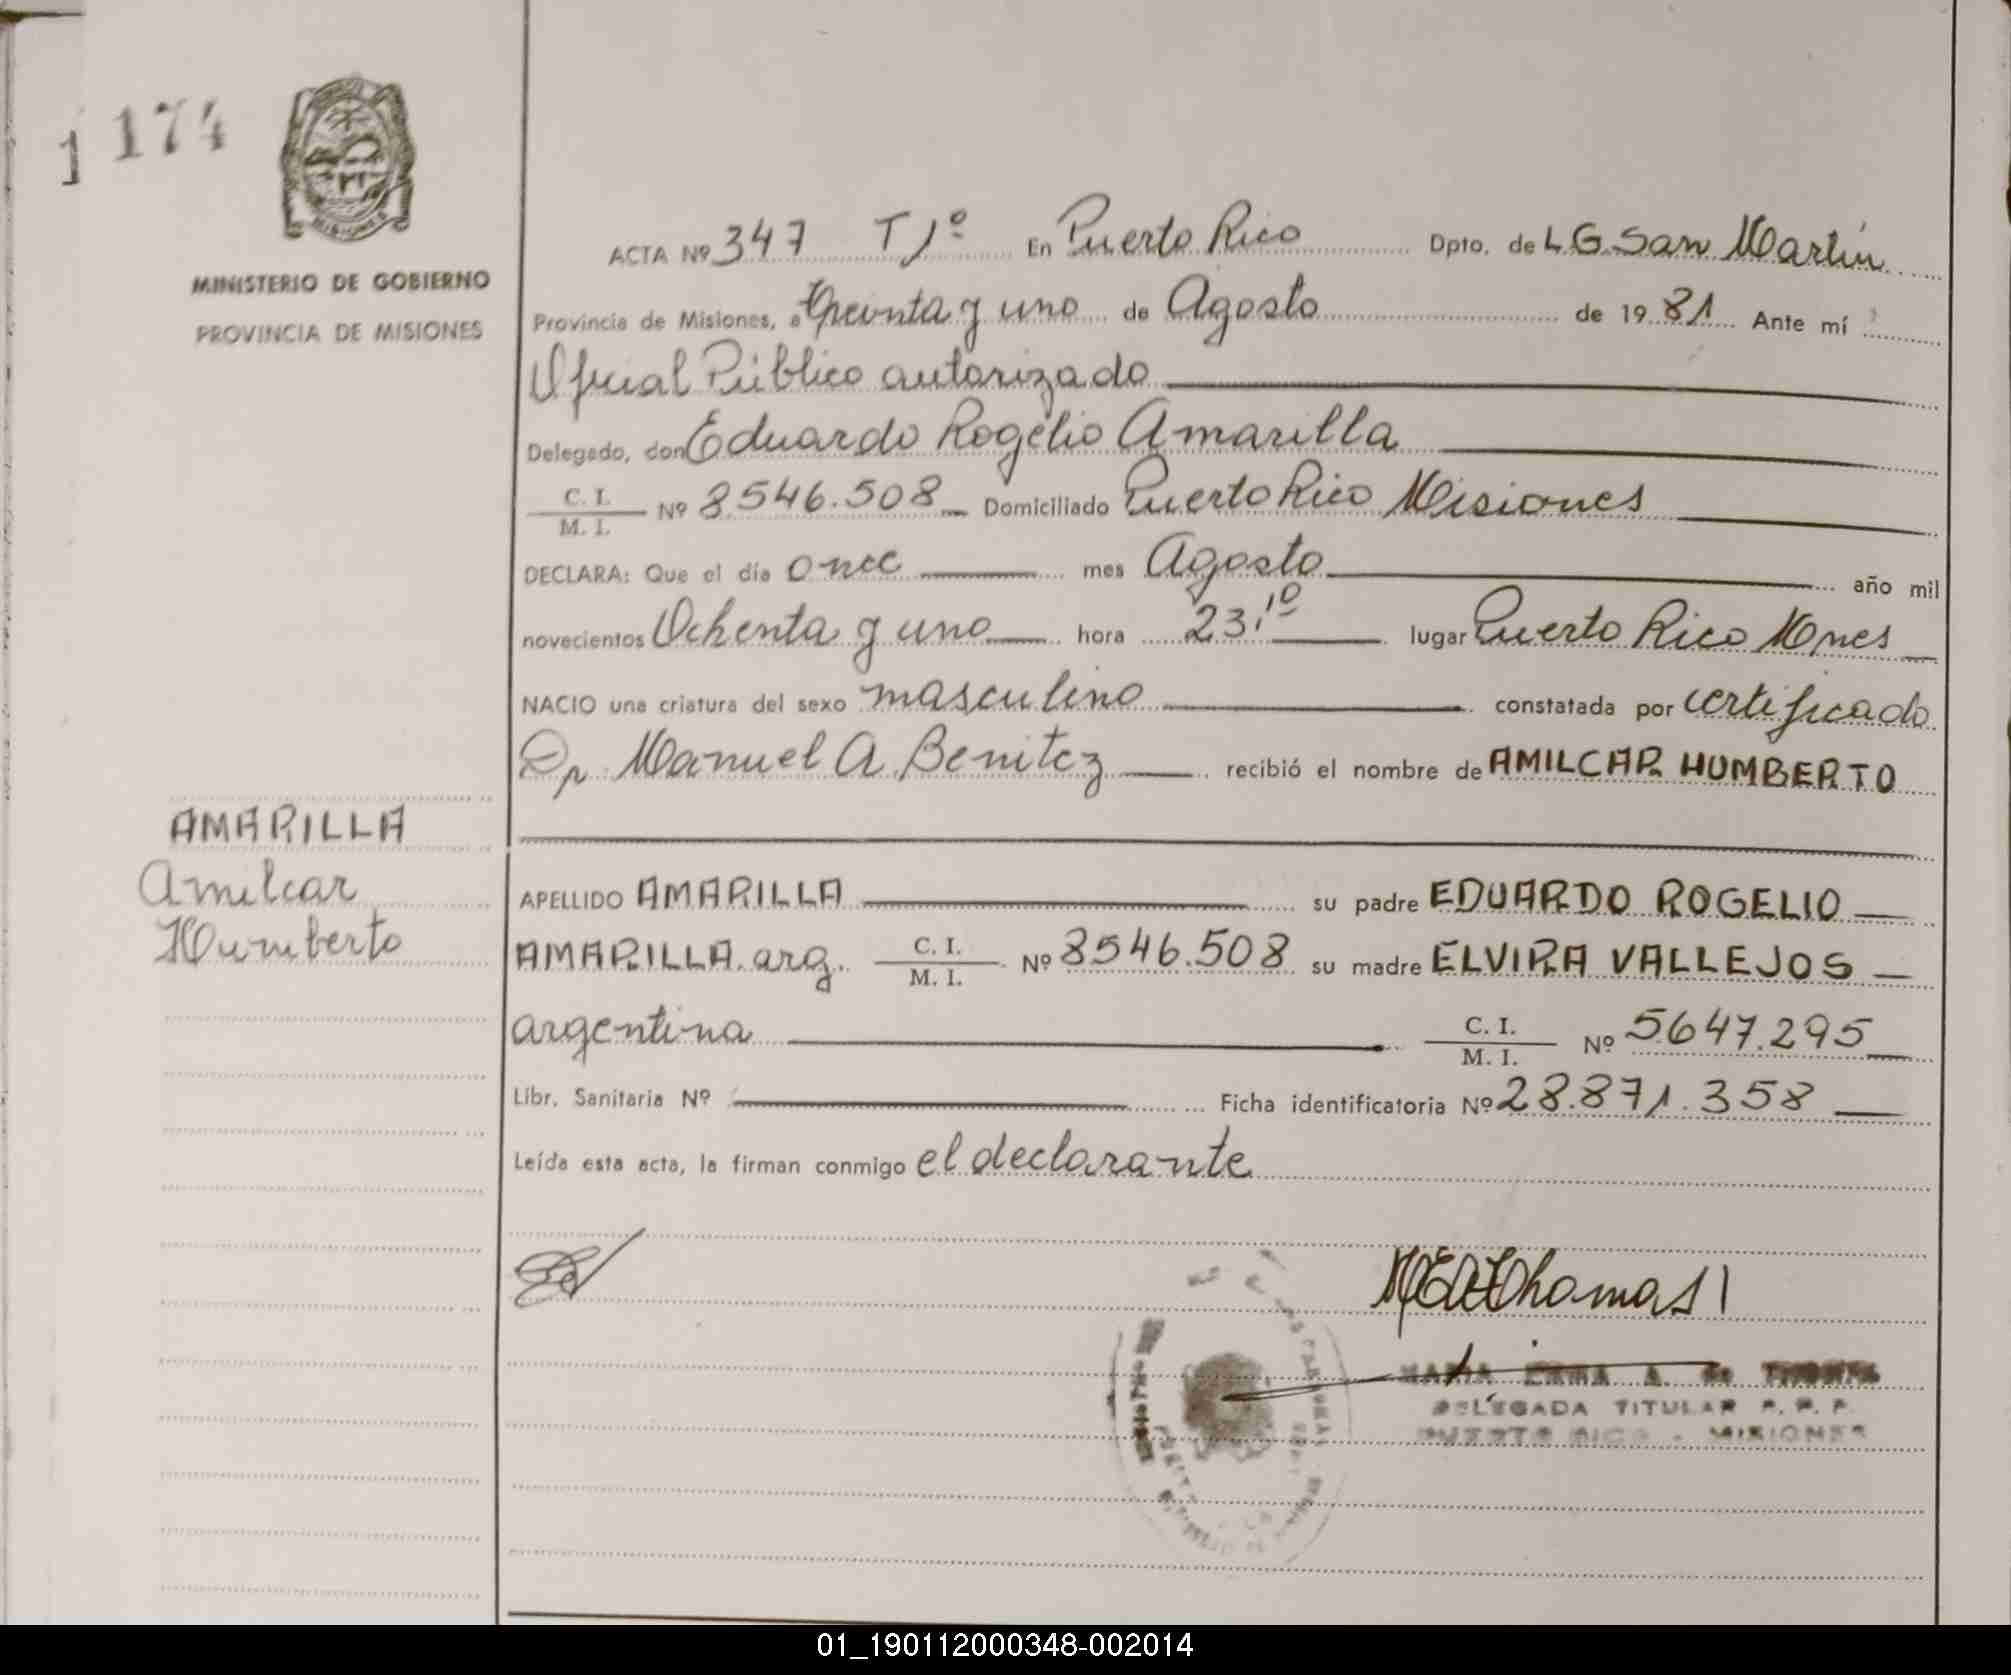 1174
MISIONES
MINISTERIO DE GOBIERNO
PROVINCIA DE MISIONES
ACTA Nº 347 T 1º En Puerto Rico Dpto. de L.G. San Martín
Provincia de Misiones, a treinta y uno de Agosto de 19 81 Ante mí
Oficial Público autorizado
Delegado, don Eduardo Rogelio Amarilla
C. I. / M. I. Nº 8546.508 Domiciliado Puerto Rico Misiones
DECLARA: Que el día once mes Agosto año mil
novecientos Ochenta y uno hora 23,10 lugar Puerto Rico Mnes
NACIO una criatura del sexo masculino constatada por certificado
Dr. Manuel A. Benitez recibió el nombre de AMILCAR HUMBERTO
AMARILLA
Amilcar
Humberto
APELLIDO AMARILLA su padre EDUARDO ROGELIO
AMARILLA. arg. C. I. / M. I. Nº 8546.508 su madre ELVIRA VALLEJOS
argentina C. I. / M. I. Nº 5647.295
Libr. Sanitaria Nº Ficha identificatoria Nº 28.871.358
Leída esta acta, la firman conmigo el declarante
Thomas
MARIA IRMA A. de THOMAS
DELEGADA TITULAR R. P. P.
PUERTO RICO - MISIONES
01_190112000348-002014